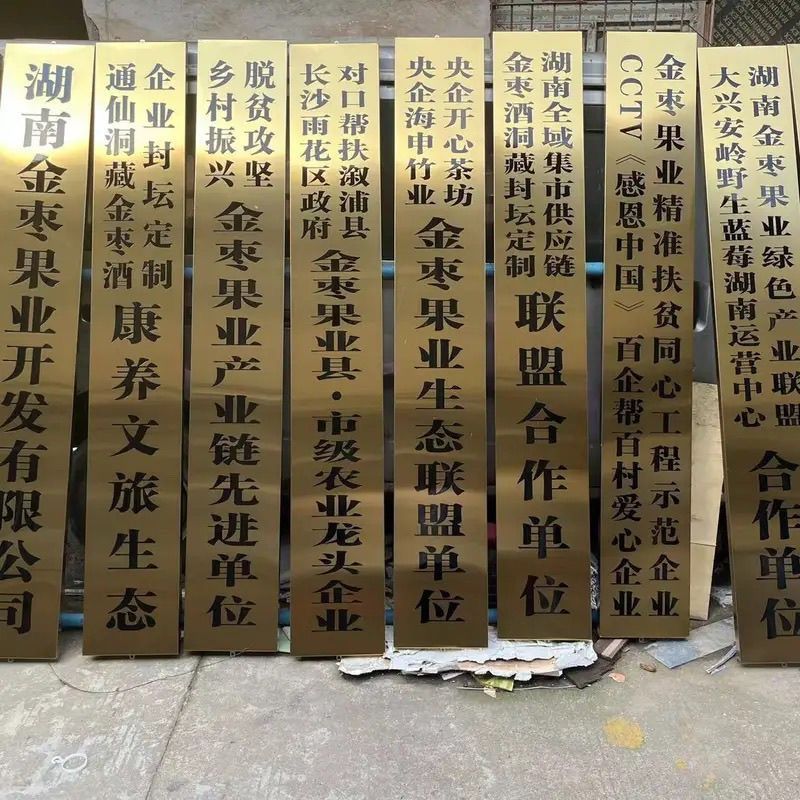 湖南金枣果业开发有限公司
企业封坛定制
通仙洞藏金枣酒
康养文旅生态
脱贫攻坚
乡村振兴
金枣果业产业链先进单位
对口帮扶溆浦县
长沙雨花区政府
金枣果业县·市级农业龙头企业
央企开心茶坊
央企海申竹业
金枣果业生态联盟单位
湖南全域集市供应链
金枣酒洞藏封坛定制
联盟合作单位
金枣果业精准扶贫同心工程示范企业
CCTV《感恩中国》百企帮百村爱心企业
湖南金枣果业绿色产业联盟
大兴安岭野生蓝莓湖南运营中心
合作单位